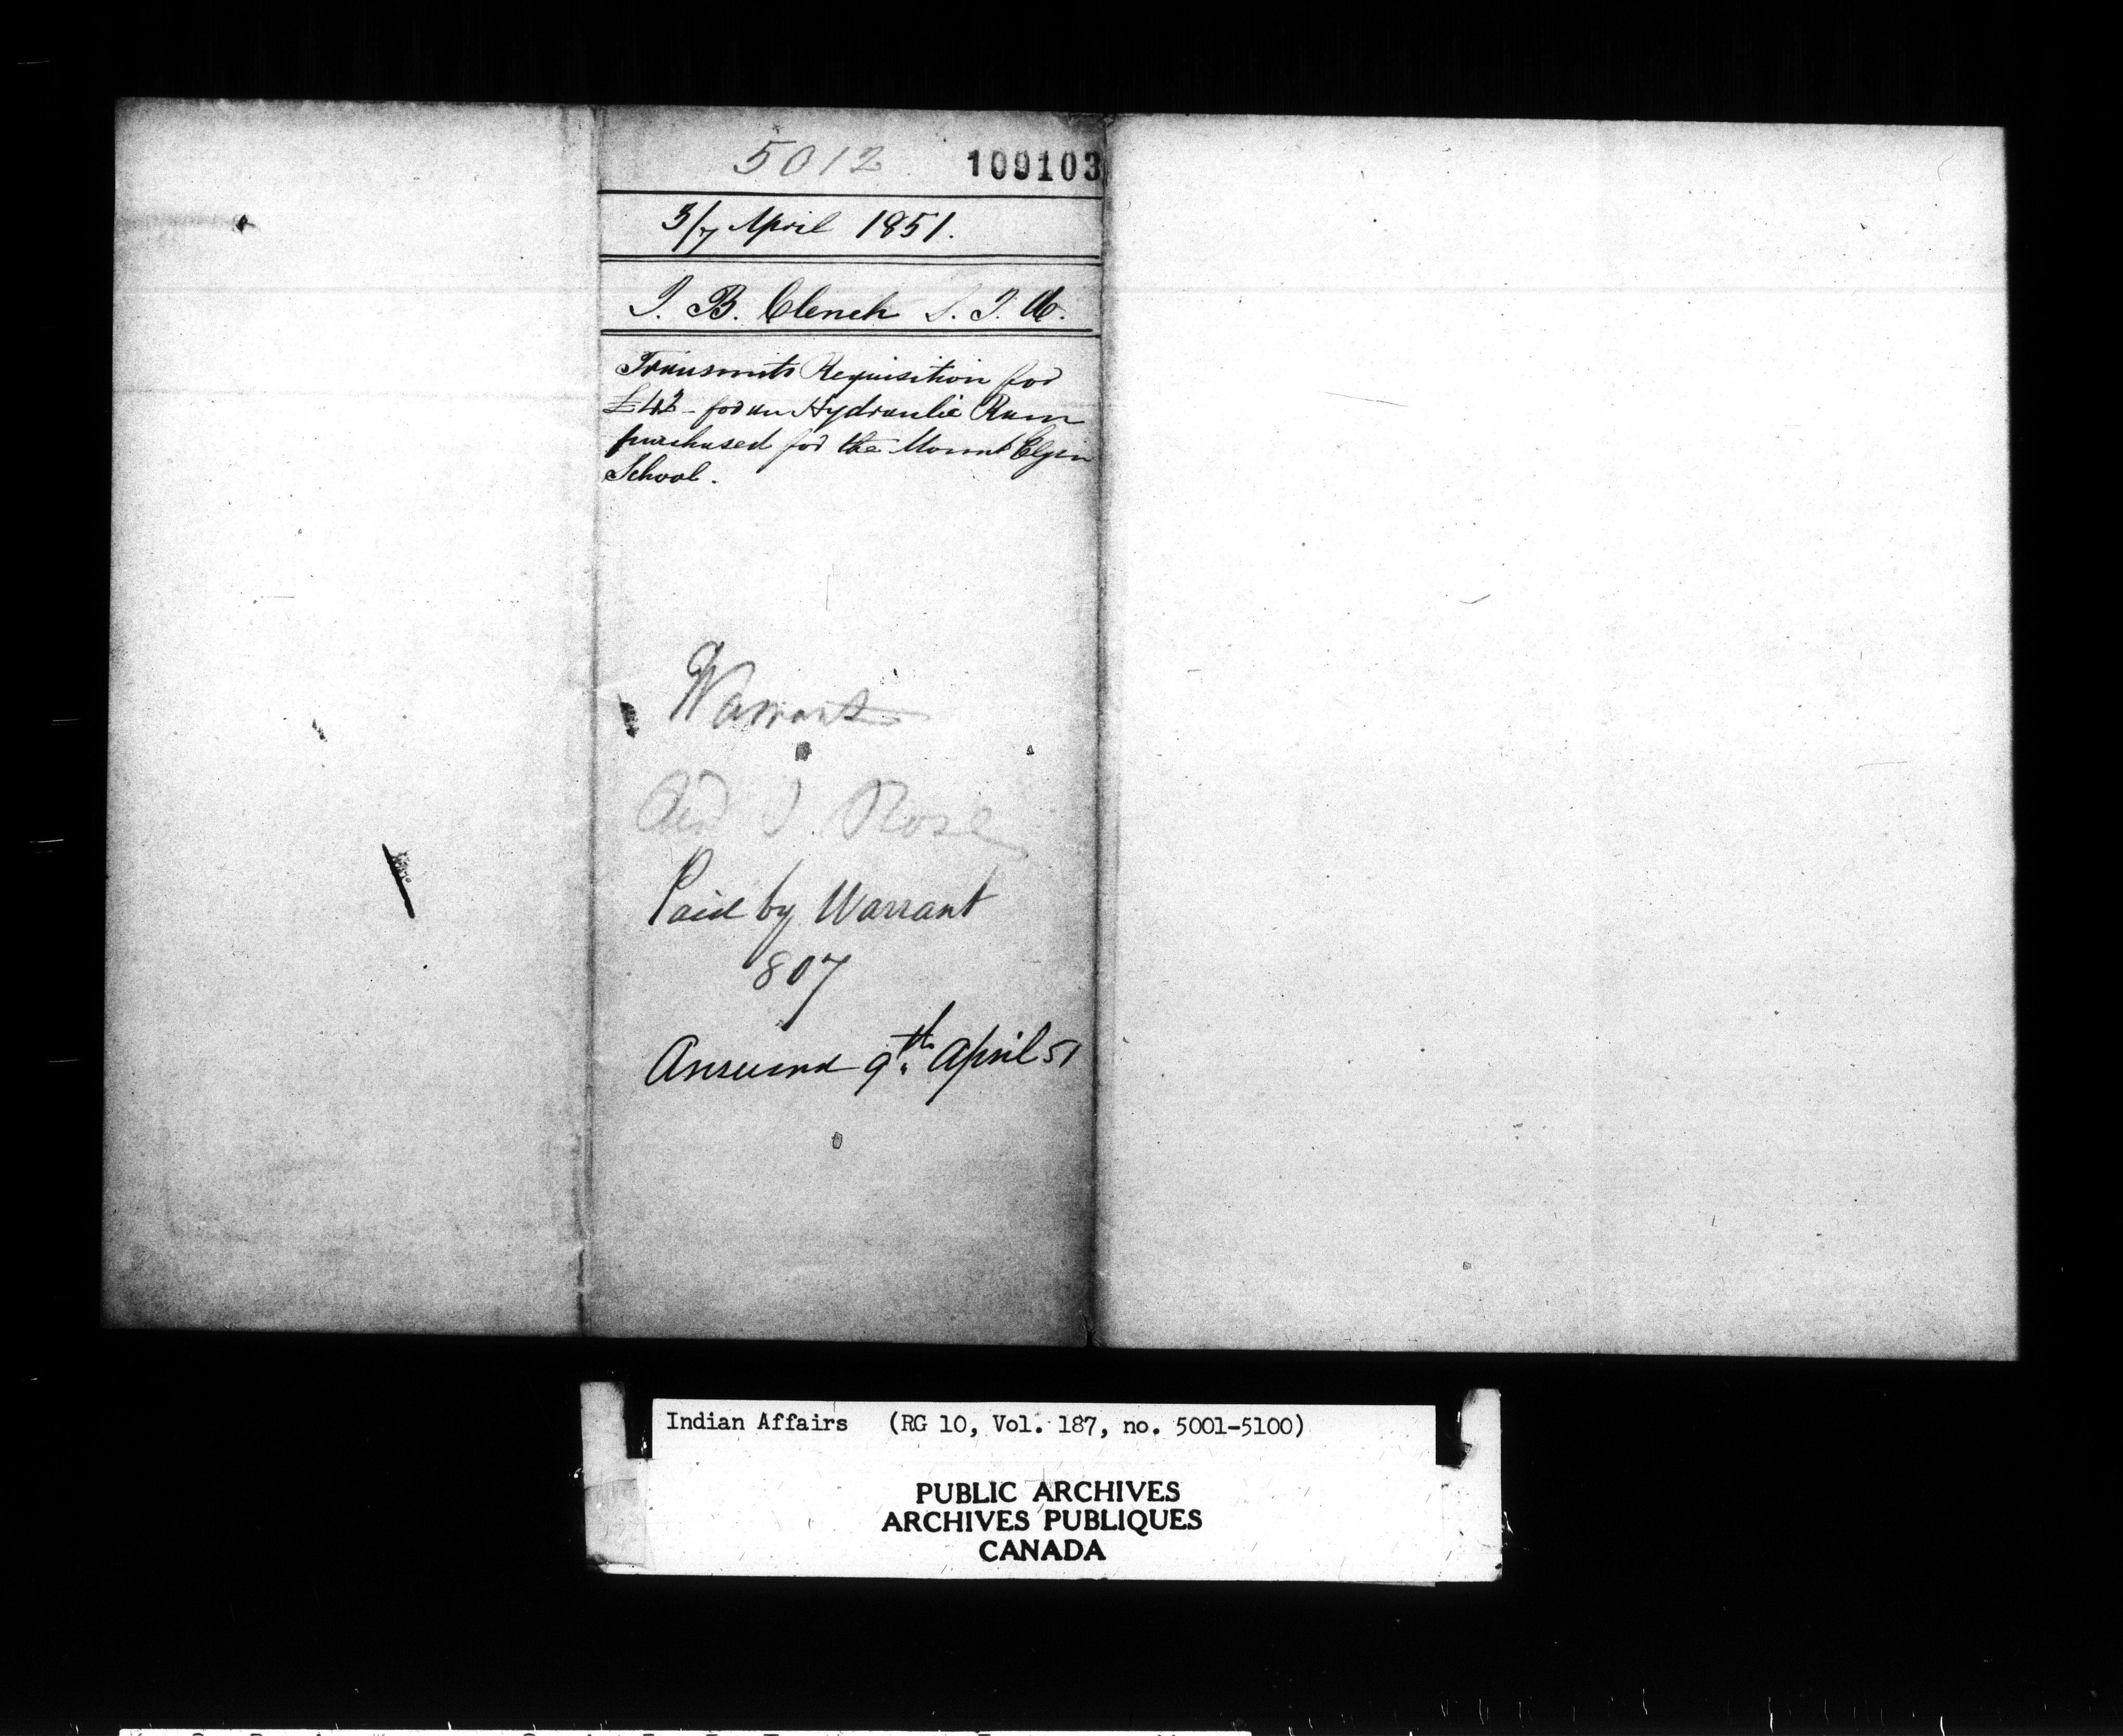 5012 109103
3/7 April 1851.
J. B. Clench S. I. A.
Transmits Requisition for
£42 - for an Hydraulic Ram
purchased for the Mount Elgin
School.
Warrant
Revd S. Rose
Paid by Warrant
807
Answered 9th April 51
Indian Affairs (RG 10, Vol. 187, no. 5001-5100)
PUBLIC ARCHIVES
ARCHIVES PUBLIQUES
CANADA